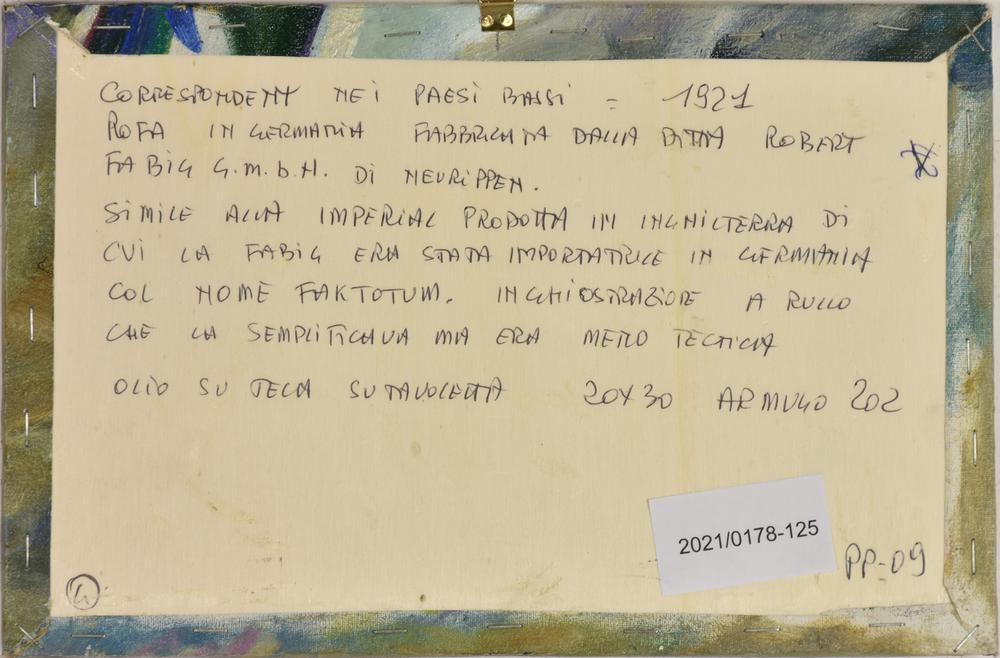 CORRESPONDENT NEI PAESI BASSI = 1921
ROFA IN GERMANIA FABBRICATA DALLA DITTA ROBERT
FABIG G.m.b.H. DI NEURIPPEN.
SIMILE ALLA IMPERIAL PRODOTTA IN INGHILTERRA DI
CUI LA FABIG ERA STATA IMPORTATRICE IN GERMANIA
COL NOME FAKTOTUM. INCHIOSTRAZIONE A RULLO
CHE LA SEMPLIFICAVA MA ERA METO TECNICA
OLIO SU TELA SU TAVOLETTA 20X30 ARMUGO 202
2021/0178-125
PP-09
4